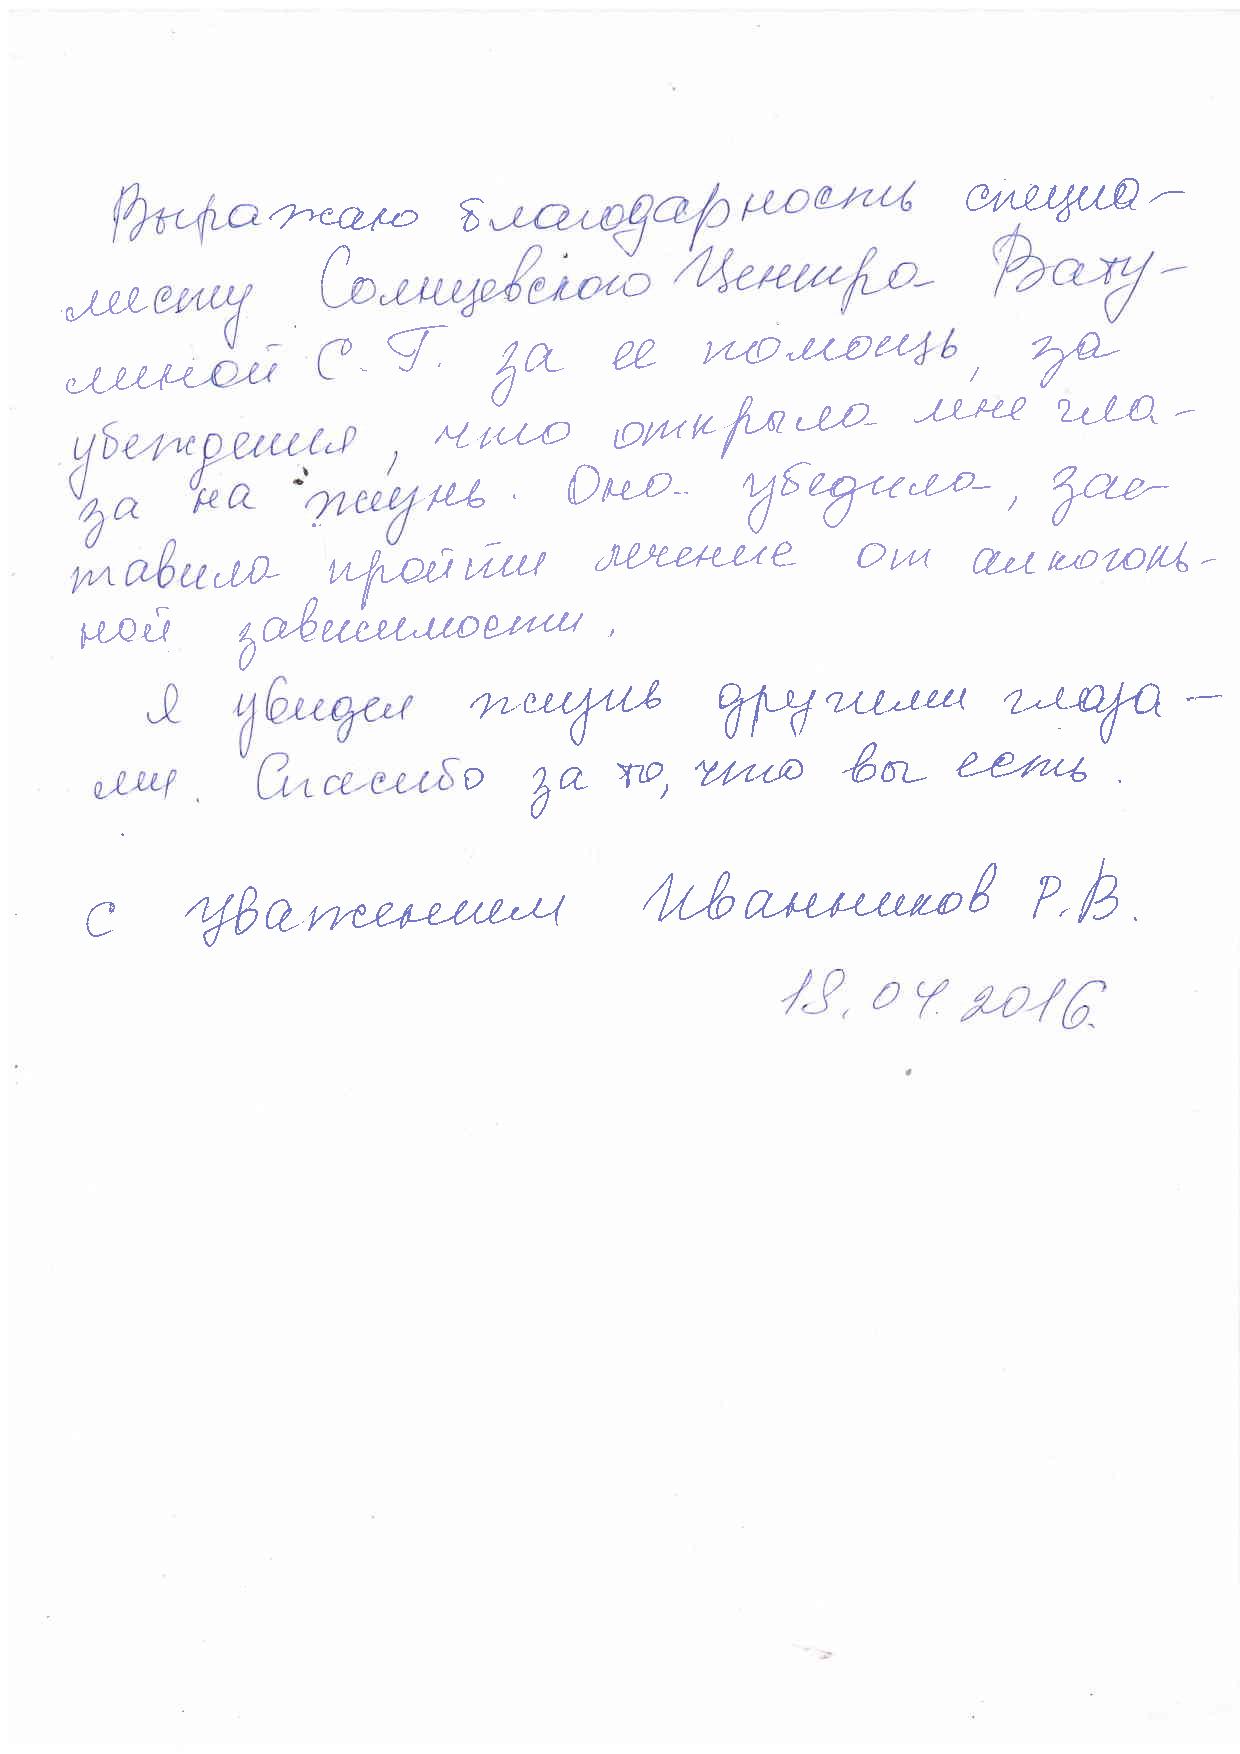 Выражаю благодарность специа-
листу Солнцевского Центра Вату-
линой С.Г. за ее помощь, за
убеждения, что открыла мне гла-
за на жизнь. Она убедила, зас-
тавила пройти лечение от алкоголь-
ной зависимости.
Я увидел жизнь другими глаза-
ми. Спасибо за то, что вы есть.
с уважением Иванников Р.В.
18.04.2016.